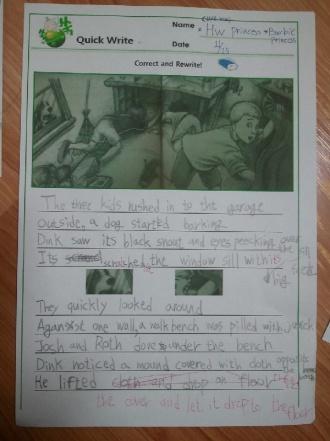 Quick Write
Name HW princess Barbie princess
Date 4/13
Correct and Rewrite!
The three kids rushed in to the garage
outside, a dog started barking
Dink saw its black snout and eyes peeking over the
Its scratched the window sill with its
big
They quickly looked around
Aganst one wall, a walk bench was pilled with
Josh and Roth dove under the bench
Dink noticed a mound covered with cloth opposite
He lifted cloth and drop on floor
the cover and let it drop to the floor